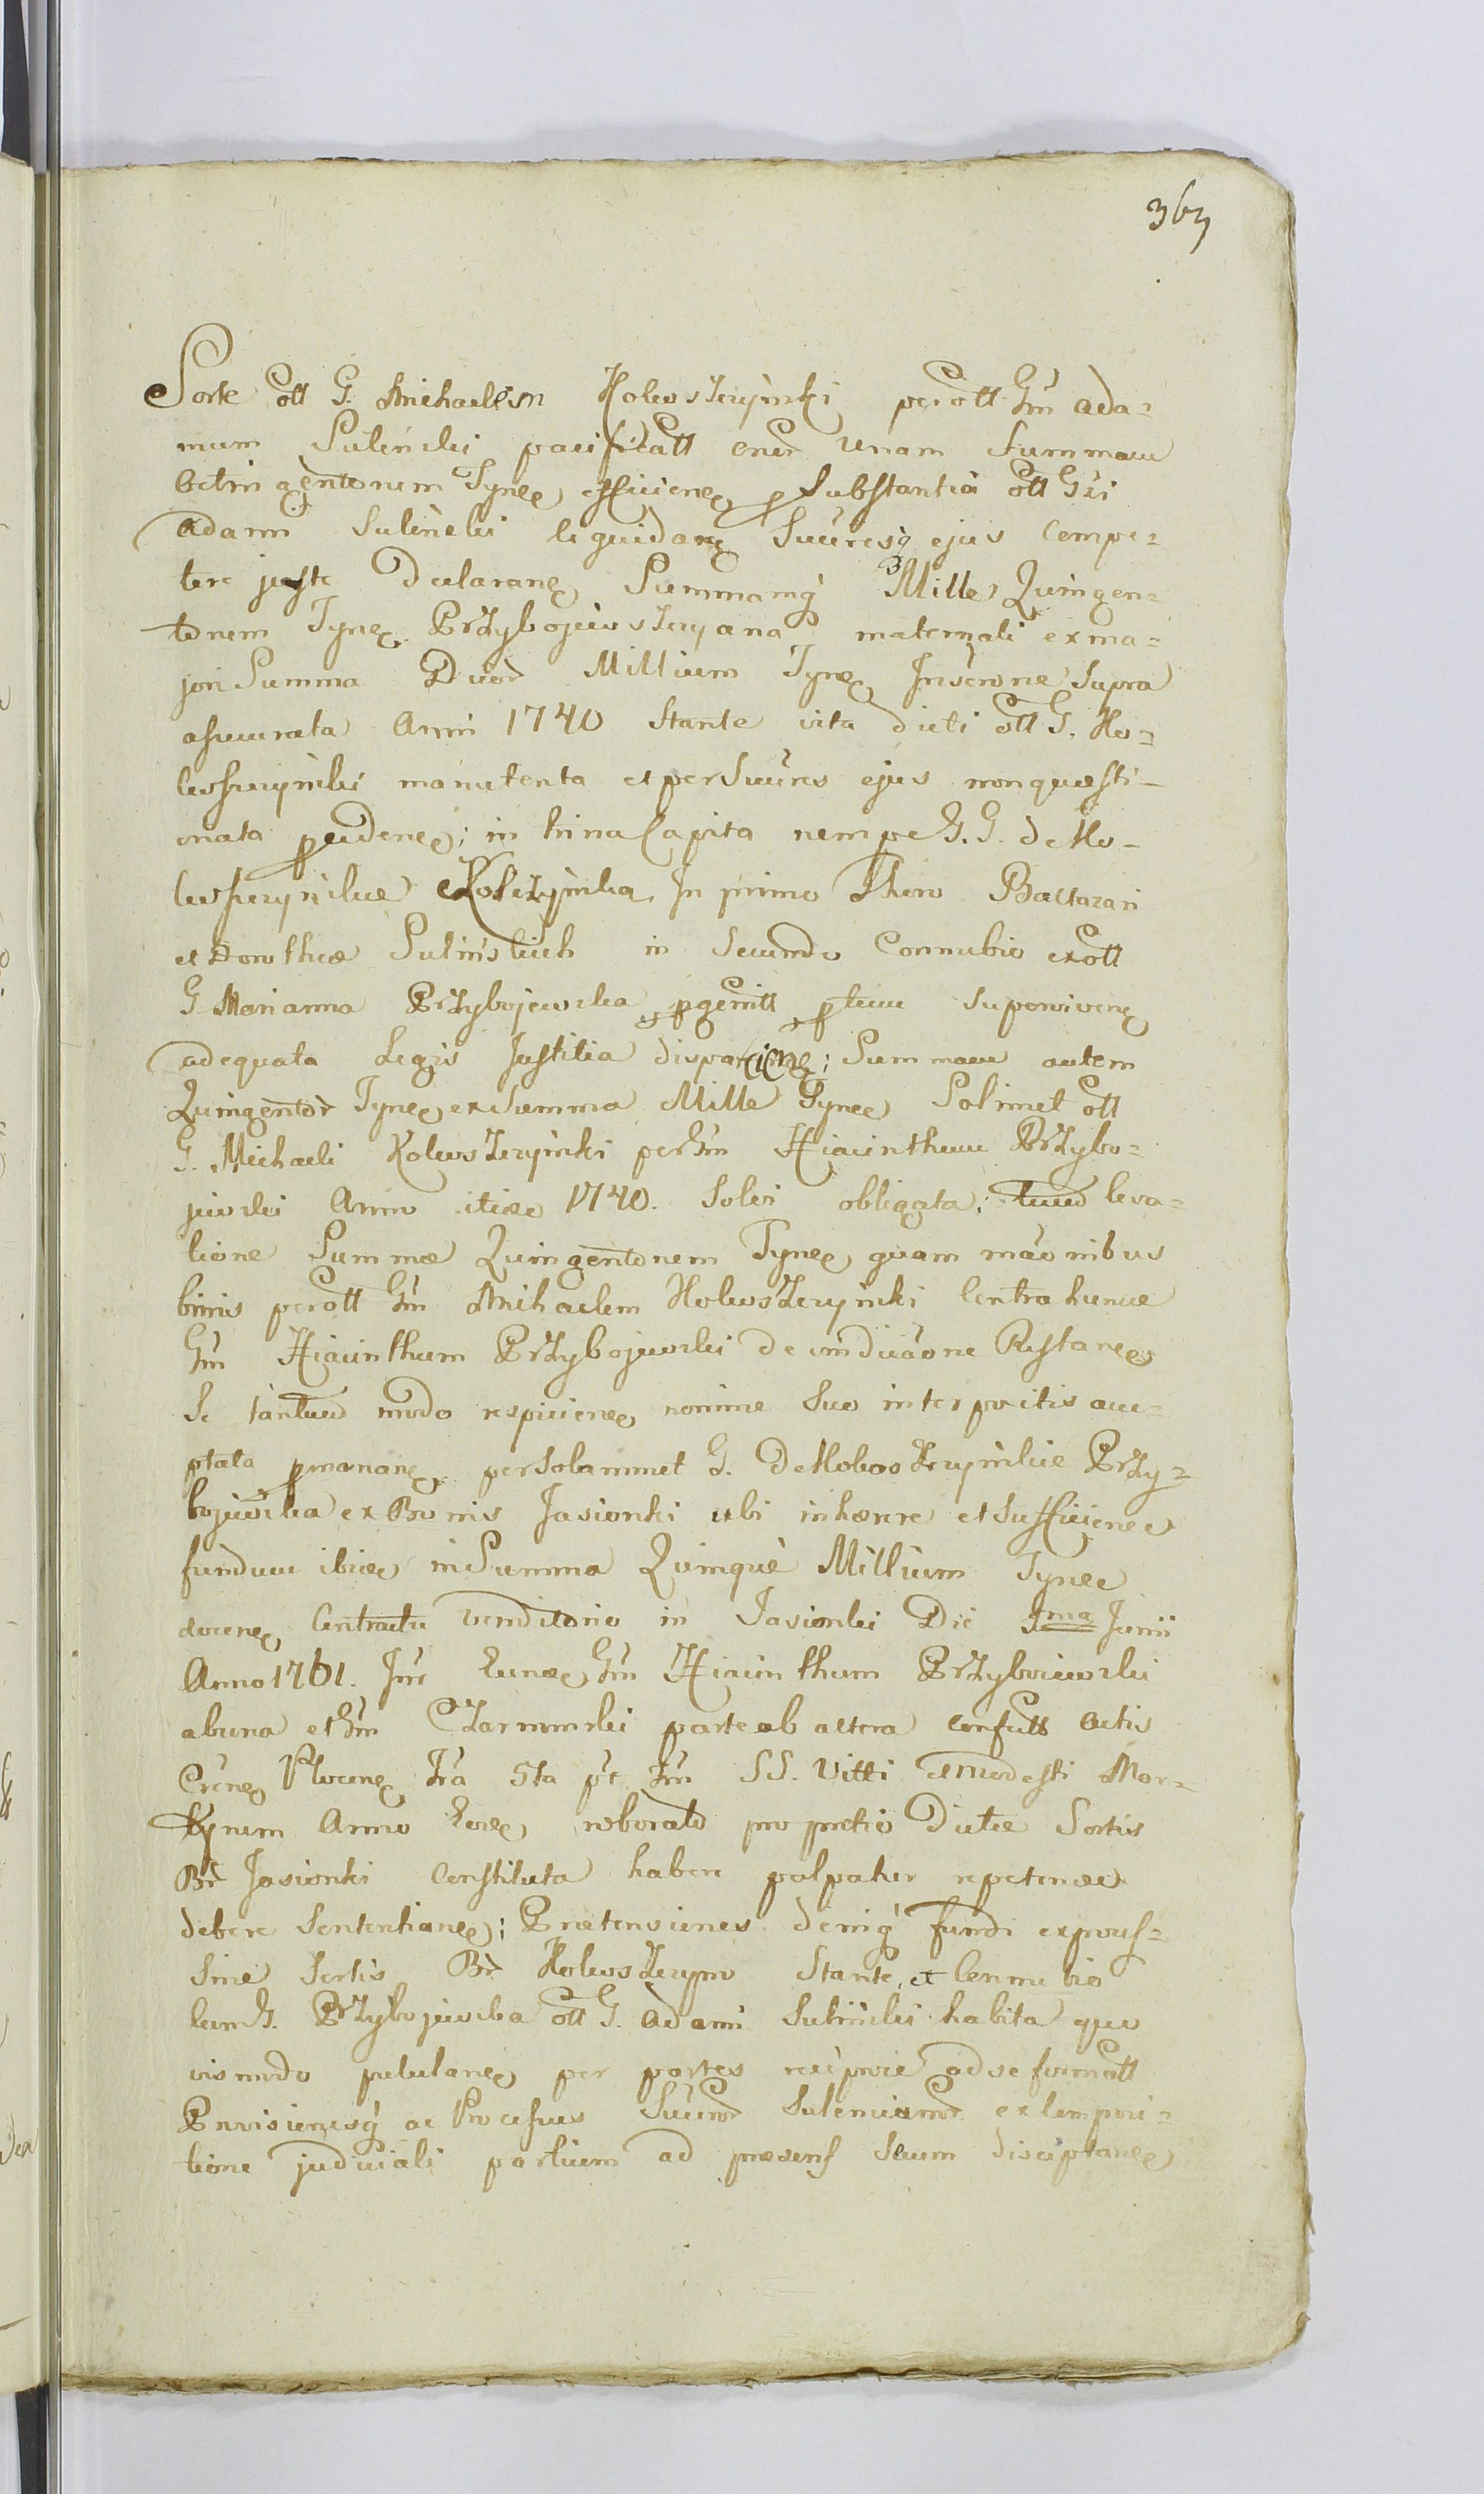 363
Sorte ott G. Michaelem Holewszczyinski per ott Gm Ada=
mum Sulinski pacificatt oner unam Summam
Octingentorum Tynff efficien p Substantia ott Gsi
Adami Sulinski liquidari Succresq ejus compe=
tere juste declaran Summamq Mille Quingen=
torum Tynf Przybojewszczyana maternali ex ma=
jori Summa Duor Millium Tynf Inserone Supra
assecurata Anni 1740 Stante vita dicti ott G. Ho=
lewszczyinski manutenta et per Succres ejus non quæsti-
onata pcedene; in trina Capita nempe G. G. de Ho-
lewszczyinskie In primo Thoro Baltazari
et Dorothea Sulinskich in Secundo Connubio ex ott
G. Marianna Przybojewska pgenitt ptunc Supervivene
adequata Legis Justitia disparciene; Summam autem
Quingentor Tynf ex Summa Mille Tynf Solimet ott
G. Michaeli Holewszczyinski per Gm Hiacinthum Przybo=
jewski Anno itide 1740. Solvi obligata; leva=
tione Summæ Quingentorum Tynf quam maonibus
binis per ott Gm Michaelem Holewszczyinski Contra hunce
Gm Hiacinthum Przybojewski de vindicaone Restane
Se tantum modo respiciene nomine Suo interpositis acce=
ptata pmanane per Solammet G. De Holewszczyinskie Przy=
bojewska ex Bonis Jasionki ubi inhærere et Sufficiene
fundum ibide in Summa Quinque Millium Tynf
docene Contractu venditorio in Jasionki Die 1ma Junii
Anno 1761. Inr Eunde Gm Hiacinthum Przyboiewski
ab una et Gm Czarnomski parte ab altera confectt Actis
Crene Plocene Fra 5ta pt Fm SS. Vitti et Modesti Mar=
tyrum Anno Eode roborato pro pretio Dictæ Sortis
Br Jasionki Constituta habere palpatur repetende
debere Sententiane; Prætensiones deniq fundi expres=
Sive Sortis Br Holewszczyno Stante et Connubio
cum G. Przybojewska ott G. Adami Sulinski habita quo
vis modo pullane per partes reciproce ad se formatt
Provisionesq ac Processus Succor Sulencianor ex compori=
tione judiciali partium ad præsens Secum disceptane